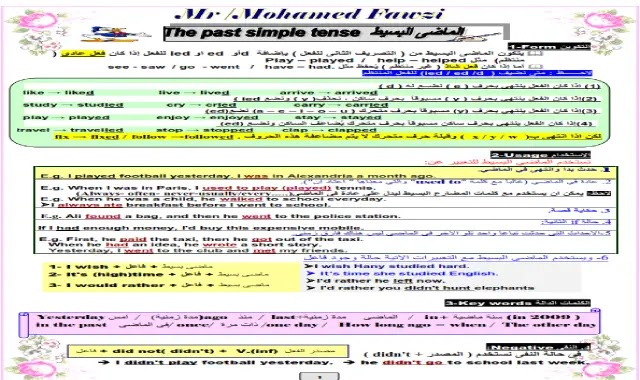 Mr /Mohamed Fawzi
The past simple tense الماضى البسيط
1-Form التكوين
يتكون الماضى البسيط من ( التصريف الثانى للفعل ) بإضافة d أو ed او ied للفعل إذا كان فعل عادى (
منتظم) مثل Play – played / help – helped
أما إذا كان فعل شاذ ( غير منتظم ) يُحفظ مثل see - saw / go - went / have – had.
متى نضيف ( ied / ed /d ) للفعل المنتظم
(1) إذا كان الفعل ينتهى بحرف ( e ) نضع له ( d )
like – liked live – lived arrive – arrived
(2) إذا كان الفعل ينتهى بحرف (y) مسبوقا بحرف ساكن ، نحذف( y ) ونضع ied )
study – studied cry – cried carry – carried
(3) إذا كان الفعل ينتهى بحرف (y) مسبوقا بحرف متحرك ( a – e – i – o – u ) نضع(ed)
play – played enjoy – enjoyed stay – stayed
(4) إذا كان الفعل ينتهى بحرف ساكن مسبوقا بحرف متحرك يُضاعف الساكن ونضع (ed)
travel – travelled stop – stopped clap – clapped
لكن اذا انتهى ب( x / y / w ) وقبله حرف متحرك لا يتم مضاعفة هذه الحروف . fix – fixed / follow –followed
2-Usage الاستخدام
نستخدم الماضى البسيط للتعبير عن:
1. حدث بدأ وانتهى في الماضي.
E.g. I played football yesterday. I was in Alexandria a month ago.
2. عادة في الماضي. (غالبا مع كلمة "used to"
E.g. When I was in Paris, I used to play (played) tennis.
يمكن ان يستخدم مع كلمات المضارع البسيط ليدل على عادة في الماضي. (Always- often- never-usually/every
E.g. When he was a child, he walked to school everyday.
➢I always ate breakfast before I went to school.
3- حكاية قصة.
E.g. Ali found a bag, and then he went to the police station.
4- حالة if الثانية:
If I had enough money, I'd buy this expensive mobile.
5-الأحداث التى حدثت تباعا واحد تلو الآخر في الماضى ليس هناك فارق زمنى
E.g. First, he paid the taxi, then he got out of the taxi.
When he had an idea, he wrote a short story.
Yesterday, I went to the club and met my friends.
6- ويستخدم الماضى البسيط مع التعبيرات الاتية حالة وجود فاعل
1- I wish + فاعل + ماضى بسيط
2- It's (high)time + فاعل + ماضى بسيط
3- I would rather + فاعل + ماضى بسيط
➢ I wish Hany studied hard.
➢ It's time she studied English.
➢I'd rather he left now.
➢ I'd rather you didn't hunt elephants
3-Key words الكلمات الدالة
Yesterday امس / ago(مدة زمنية) منذ / last+مدة زمنية الماضى / in+ سنة ماضية (in 2009 )
in the past فى الماضى /once/ ذات مرة /one day / How long ago – when/ The other day
Negative النفى
فاعل + did not( didn't) + V.(inf) مصدر الفعل
في حالة النفي نستخدم ( المصدر + didn't )
→ I didn't play football yesterday. → he didn't go to school last week.